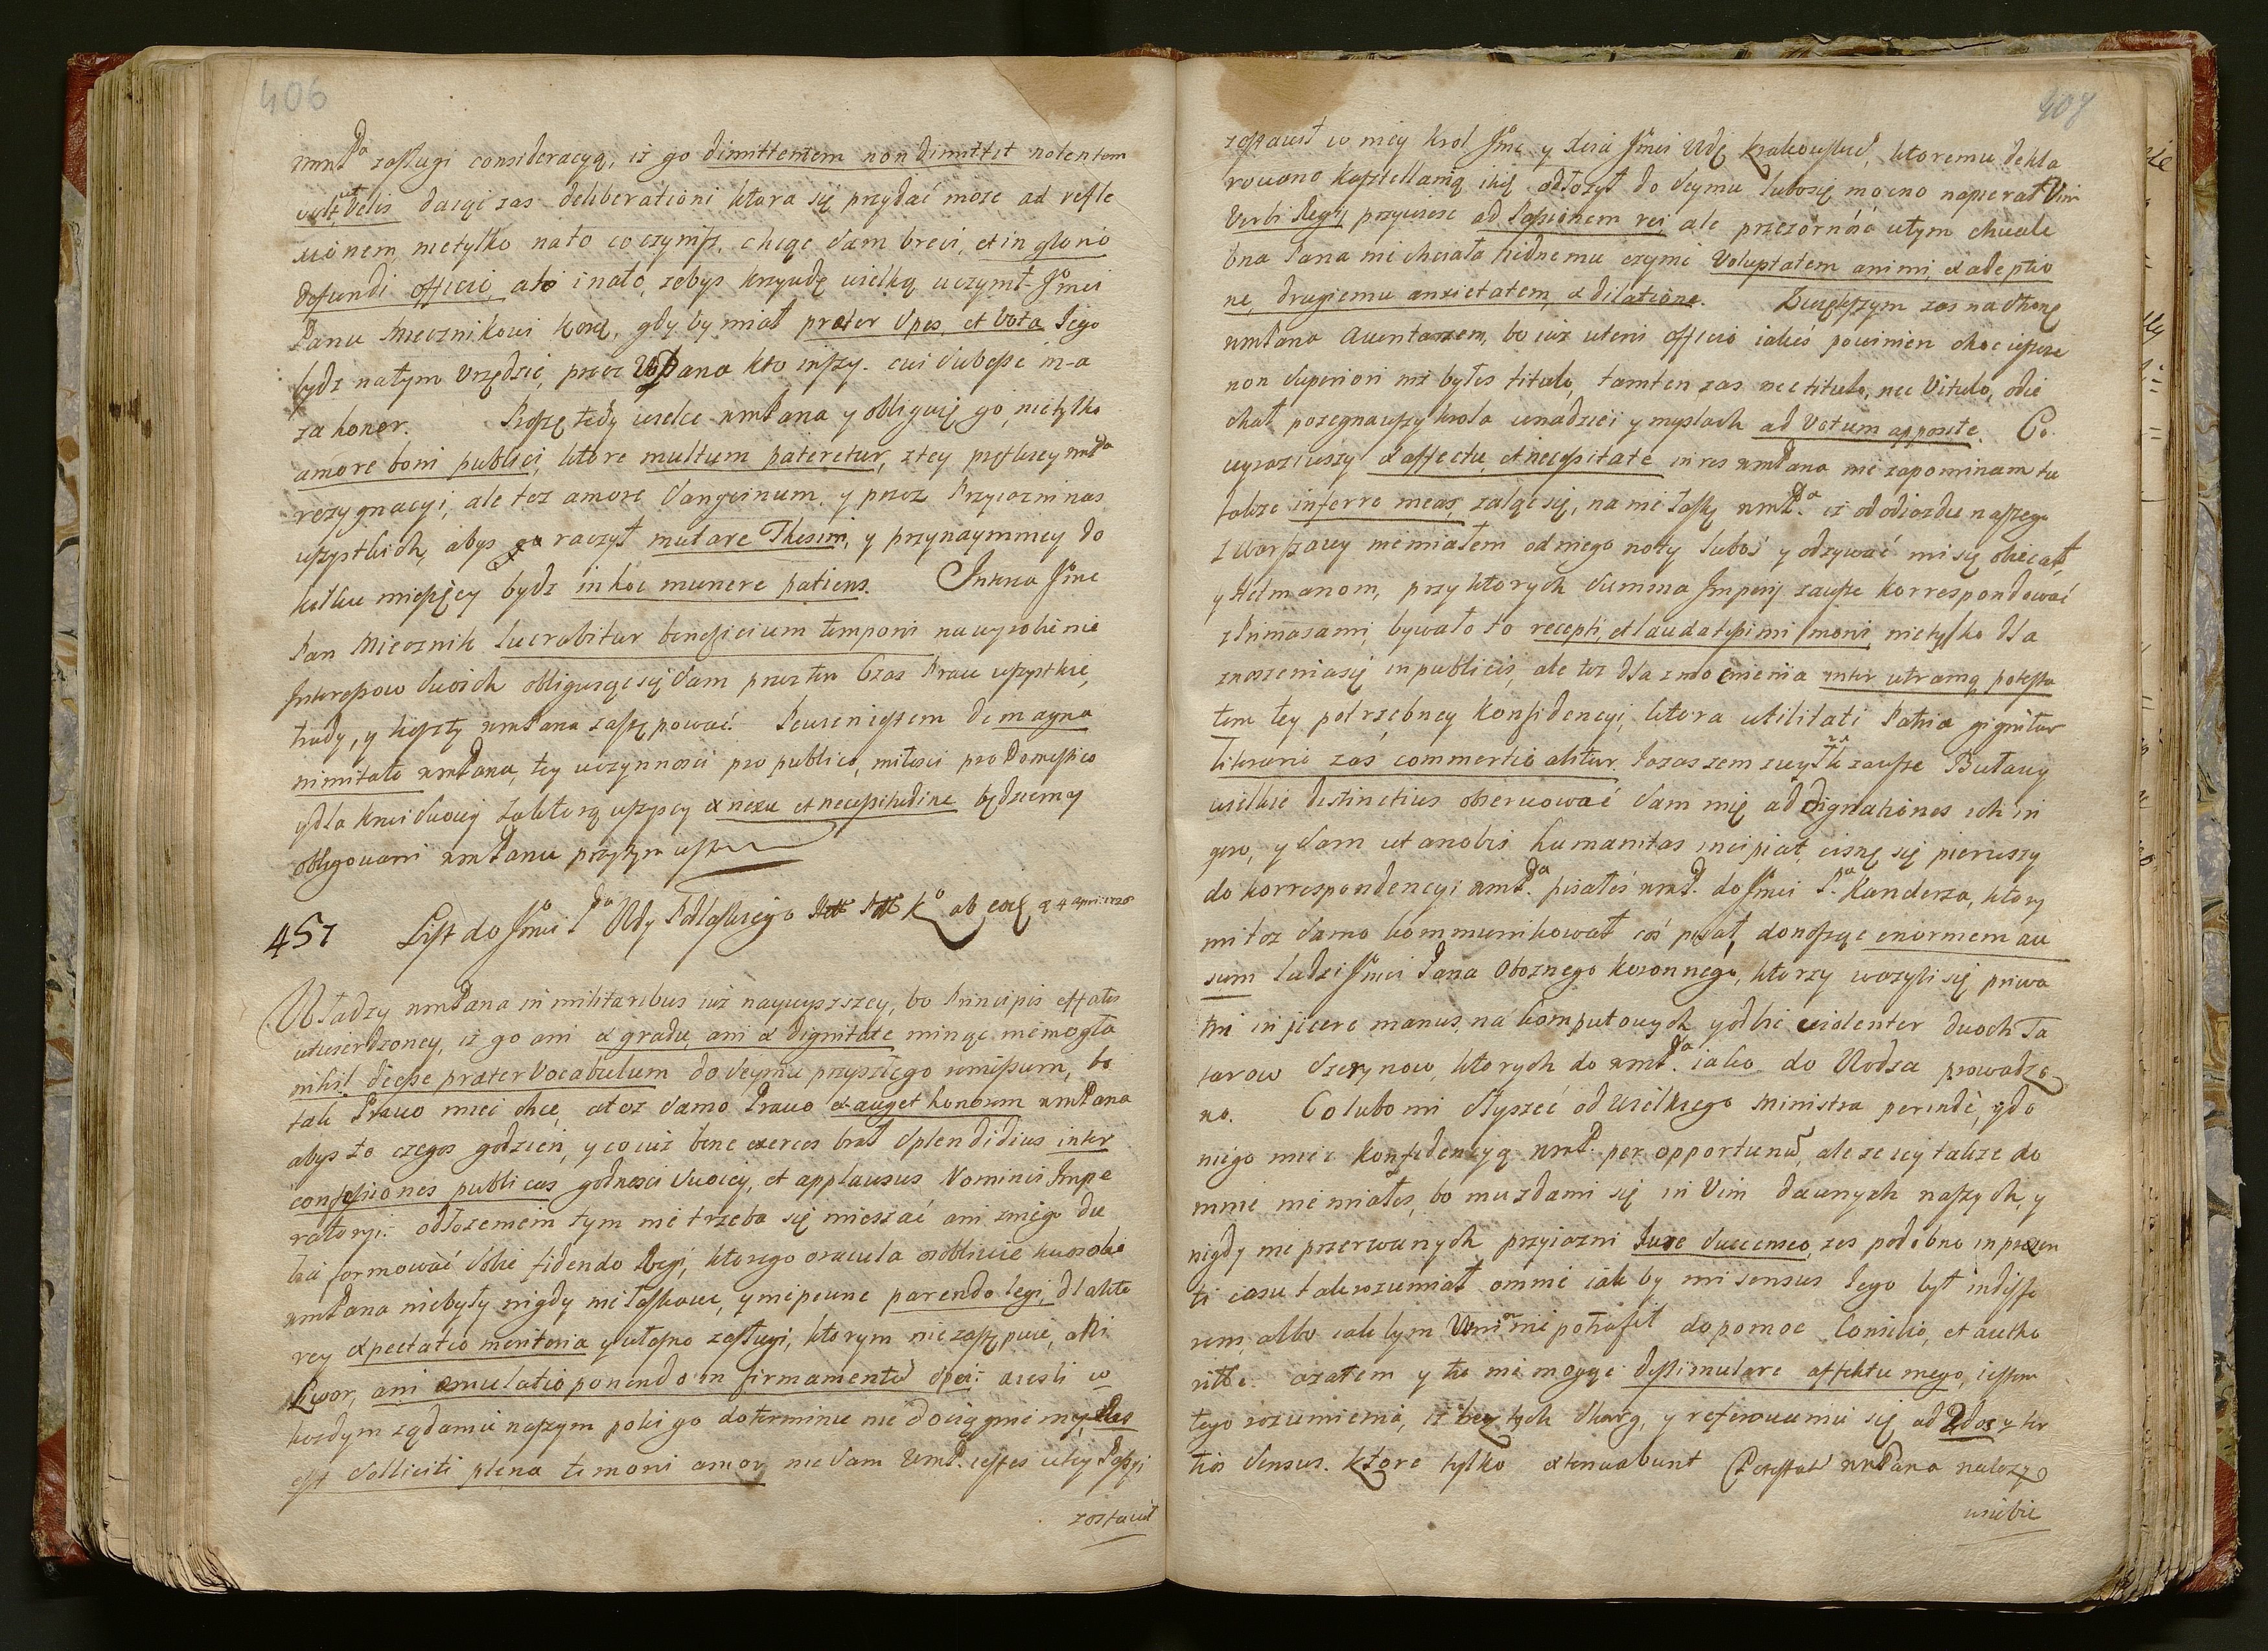 406
wmPa zasługi consideracyą, iż go dimittentem non dimittit nolentem
velit daiąc zas deliberationi ktora się przydać może ad refle
xionem nietylko nato co czynisz, chcąc sam brevi, et in glorio
defundi officio, ale i nato, zebys krzywdę wielką uczynił Jmci
Panu Miecznikowi Kor, gdy by miał praeter spes, et vota Jego
bydz natym Urzędzie, przez WPana kto inszy. cui subesse in-a
za honor. Proszę tedy wielce wmPana y obliguię go, nietylko
amore boni publici, ktore multum pateretur, ztey prętkiey wmPa
rezygnacyi, ale tez amore sangvinum, y przez Przyiazni nas
wszystkich, abys raczył mutare Thesim, y przynaymniey do
kilku miesięcy bydz in hoc munere patiens. Interea Jmc
Pan Miecznik lucrabitur beneficium temporis na wyrobienie
Interessow swoich obliguiąc się sam przez ten Czas Prace wszystkie,
trudy, y koszty wmPana zastępować. Pewien iestem de magna
nimitate wmPana, tey uczynnosci pro publico, miłosci pro Domestico
y dla krwi swoiey za ktorą wszyscy ex nexu et necessitudine będziemy
obligowani wmPanu przytym
457 List do Jmci Pa Wdy Podlaskiego ab eod 24 Apri: 1720
Władzy wmPana in militaribus iuż naywyzszey, bo Principis effatis
utwierdzoney, iż go ani ex gradu, ani ex dignitate minąc niemogła
nihil deesse praeter Vocabulum do Seymu przyszłego remissum, bo
tak Prawo miec chce, a toz samo Prawo ex auget honorem wmPana
abys to czegos godzien, y co iuż bene exerces brał splendidius inter
confessiones publicas godnosci swoiey, et applausus Nominis Impe
ratorij: odłozeniem tym nie trzeba się mieszać ani zniego du
bia formować sobie fidendo Regi, ktorego oracula osobliwie
wmPana niebyły nigdy nie łaskawe, y niepewne parendo legi, dla kto
rey expectatio meritoria y własne zasługi, ktorym nie zastępuie, ani
Livor, ani aemulatio ponendo in firmamento spei: a iesli w
kozdym ządaniu naszym poki go doterminu nie dociągniemy, Res
est solliciti plena timoris amor, nie sam WmP. iestes w tey Passyi
zostawił

407
zostawił w niey krol Jmc y Xcia Jmci Wdę Krakowskie, ktoremu dekla
rowano Kasztellanią iką odłozył do Seymu lubosię mocno napierał Vim
Verbi Regij przywiesc ad Possionem rei ale przezorność w tym chwale
bna Pana nie chciała iednemu czynic Voluptatem animi, ex adeptio
ne, drugiemu anxietatem, ex dilatione. Zwiększym zas na stronę
wmPana Avantazem, bo iuż utens officio iakieś powinien choc ieszcze
non superiori niz byłes titulo, tamten zas nec titulo, nec Vitulo, odie
chał pozegnawszy krola w nadziei y myslach ad Votum apposite. Co
wyraziwszy ex affectu, et necessitate in res wmPana nie zapominam tu
takze inferre meas, zaląc się, na nie łaskę wmPa iż od odiazdu naszego
z Warszawy niemiałem od niego noty luboś y odzywać mi się obiecał,
y Hetmanom, przy ktorych summa Imperij zawsze korrespondować
z Primasami, bywało to recepti, et laudatissimi moris nietylko dla
znoszenia się in publicis, ale toz dla zmocnienia inter utramq potesta
tem tey potrzebney Konfidencyi, ktora utilitati Patriae gignitur
Literario zas commertio alitur. Ja zas zem zwykł zawsze Buławy
wielkie distinctius obserwować sam mię ad dignationes ich in
gero, y sam ut a nobis humanitas incipiat, cisnę się pierwszy
do korrespondencyi wmPa. pisałeś wmP. do Jmci Pa Kanclerza, ktory
mi toz samo kommunikował coś pisał, donosząc enormem au
sum ludzi Jmci Pana Oboznego koronnego, ktorzy wazyli się, priva
tim injicere manus, na komputowych y odbic evidenter dwoch Ta
tarow Szerynow, ktorych do wmPa. iako do Wodza prowadzo
no. Co lubo mi słyszeć od Wielkiego Ministra perinde, y do
niego miec Konfidencyą wmP. per opportunu, ale ze iey takze do
mnie nie miałes, bo muzdami się in Vim dawnych naszych, y
nigdy nie przerwanych przyiazni Iure succenseo, zes podobno in praesen
ti casu tak rozumiał o mnie iak by mi sensus Jego był indiffe
rens, albo iak bym WM nie potrafił dopomoc Consilio, et aucto
ritate. azatem y tu nie mogąc dissimulare affektu mego, iestem
tego rozumienia, iż bez tych skarg, y referowania się ad 2dos y ter
tios Sensus. ktore tylko extenuabunt Potestate wmPana nalezy
w siebie